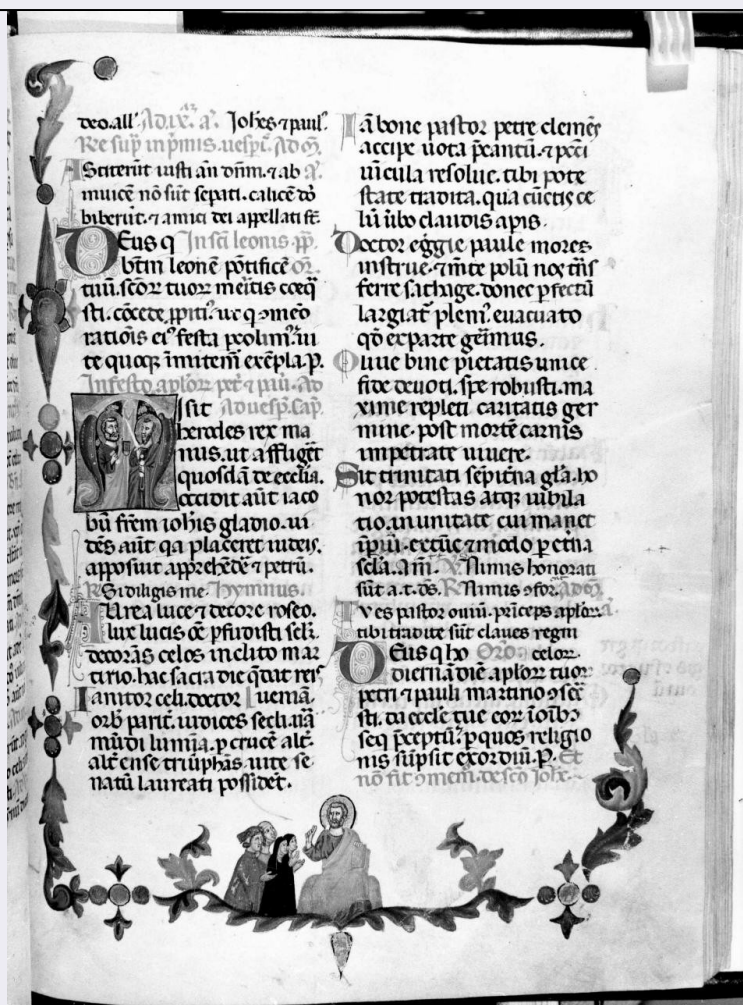 deo. all' Ad ix. a. Iohes ⁊ paul'.
Re sup in pmis. uespi. Ad
Astiterūt iusti an dnm. ⁊ ab
inuicē nō sūt sepati. calicē dō
biberūt. ⁊ amici dei appellati st.
DEus q In sci leonis. pp.
btm leonē pōtificē or.
tuū. scōꝝ tuoꝝ meritis coeq̄
sti. cōcede ꝓpiti'. ut q ɔmeō
rationis ei' festa peolim'.
te quoqꝫ imitem' exēpla. p.
In festo aploꝝ pet' ⁊ pau. Ad
Misit Ad uesp. Cap.
herodes rex ma
nus. ut affliget
quosdā de ecclia.
occidit aūt iaco
bū frēm iohis gladio. ui
dēs aūt qa placeret iudeis.
apposuit apprehēde ⁊ petrū.
R Si diligis me. Hymnus.
AUrea luce ⁊ decore roseo.
lux lucis oē pfudisti sclꝫ.
decorās celos inclito mar
tirio. hac sacra die q dat reis
Ianitor celi. doctor ueniā.
orb' parit'. iudices secli. uā
mūdi lumīa. p crucē alt'.
alt' ense triūphās. uite se
natū laureati possidet.
Iā bone pastor petre clemēs
accipe uota pcantū. ⁊ pcci
uincula resolue. tibi pote
state tradita. qua cūctis ce
lū ubo claudis apis.
Doctor eggie paule mores
instrue. ⁊ mte polū nos tns
ferre sathage. donec pfectū
largiat plēni'. euacuato
qd exparte gerimus.
Oliue bine pietatis unice
fide deuoti. spe robusti. ma
xime repleti caritatis ger
mine. post mortē carnis
impetrate uiuere.
Sit trinitati sēpitna gla. ho
nor potestas atqꝫ iubila
tio. in unitate cui manet
ipiū. extūc ⁊ modo p etna
scla. Am. V Nimis honorati
sūt a. t. ds. R Nimis ɔfor. Ad
Tv es pastor ouiū. prīceps aploꝝ.
tibi tradite sūt claues regni
DEus q ho Oro. celoꝝ.
diernā diē aploꝝ tuoꝝ
petri ⁊ pauli martirio ɔsec
sti. da eccle tue eoꝝ i oībꝫ
seq pceptū. p quos religio
nis sūpsit exordiū. P. Et
nō fit ɔmem. de sco Ioh.